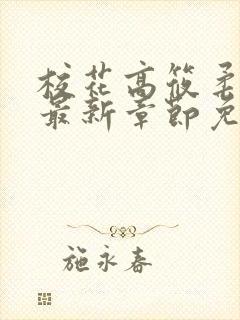 校花高筱柔
最新章节免
施永春